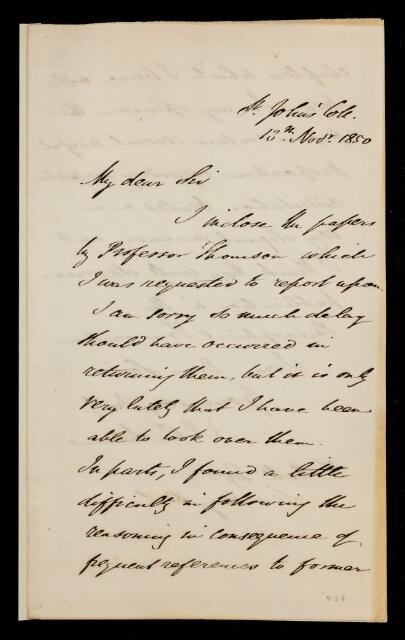 St. John's Coll.
13th. Novr. 1850
My dear Sir
I inclose the papers
by Professor Thomson which
I was requested to report upon.
I am sorry so much delay
should have occurred in
returning them, but it is only
very lately that I have been
able to look over them.
In parts, I found a little
difficulty in following the
reasoning in consequence of
frequent references to former